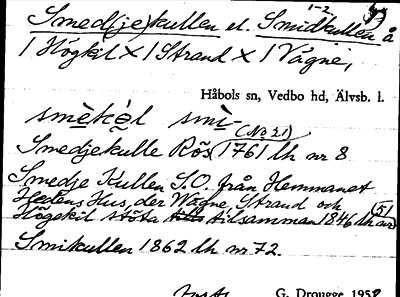 Smed(je)kullen el. Smidkullen å
1-2
1 Högkil × 1 Strand × 1 Vågne,
Håbols sn, Vedbo hd, Älvsb. l.
smèkə̀l smì-
(No 21)
Smedjekulle Rös 1761 lh nr 8
Smedje Kullen S.O. från Hemmanet
Hedens Hus, der Wågne, Strand och
Högekil stöta tilsamman 1846 lh nr 51
Smikullen 1862 lh nr 72.
G. Drougge 1952